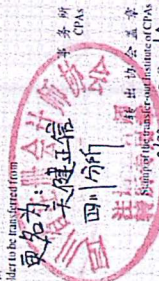 lder to be transferred from
更名为:
天健正信
四川分所
事务所
CPAs
转出协会盖章
Stamp of the transfer-out Institute of CPAs